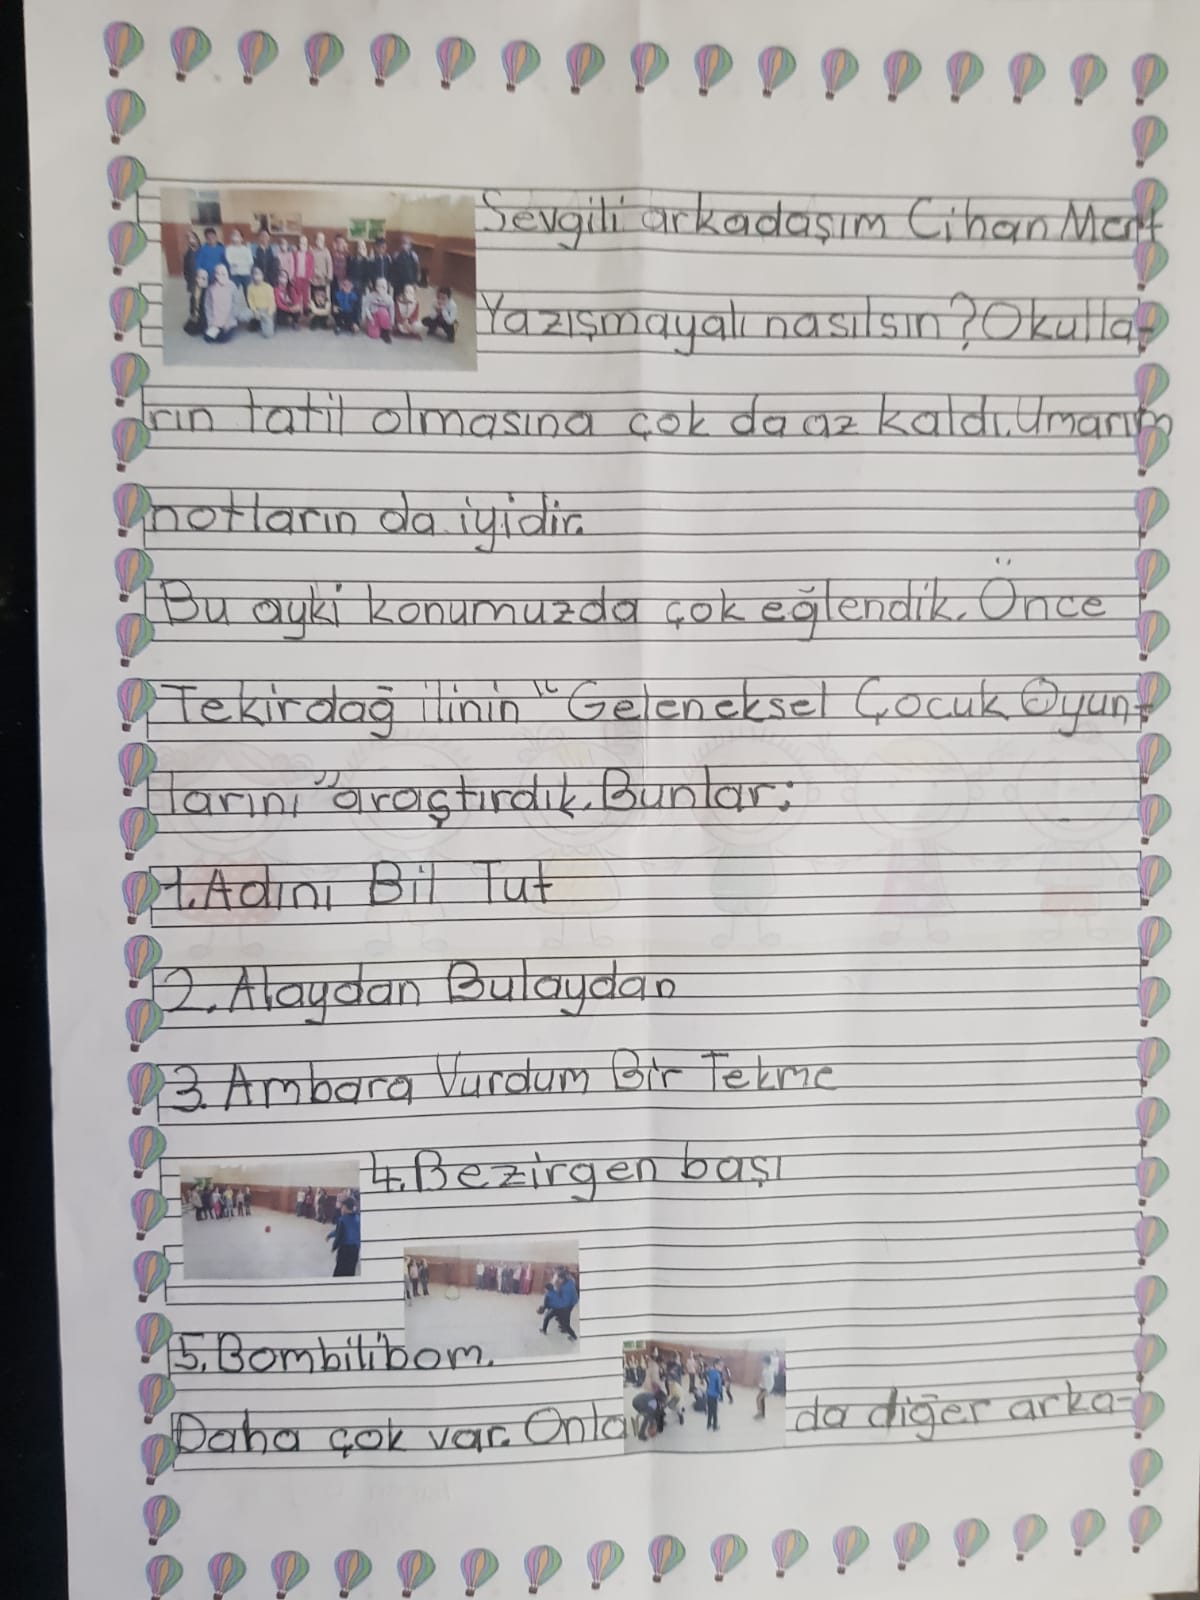 Sevgili arkadaşım Cihan Mert
Yazışmayalı nasılsın? Okulla-
rın tatil olmasına çok da az kaldı. Umarım
notların da iyidir.
Bu ayki konumuzda çok eğlendik. Önce
Tekirdağ ilinin "Geleneksel Çocuk Oyun-
larını" araştırdık. Bunlar:
1. Adını Bil Tut
2. Alaydan Bulaydan
3. Ambara Vurdum Bir Tekme
4. Bezirgen başı
5. Bombilibom.
Daha çok var. Onlar da diğer arka-